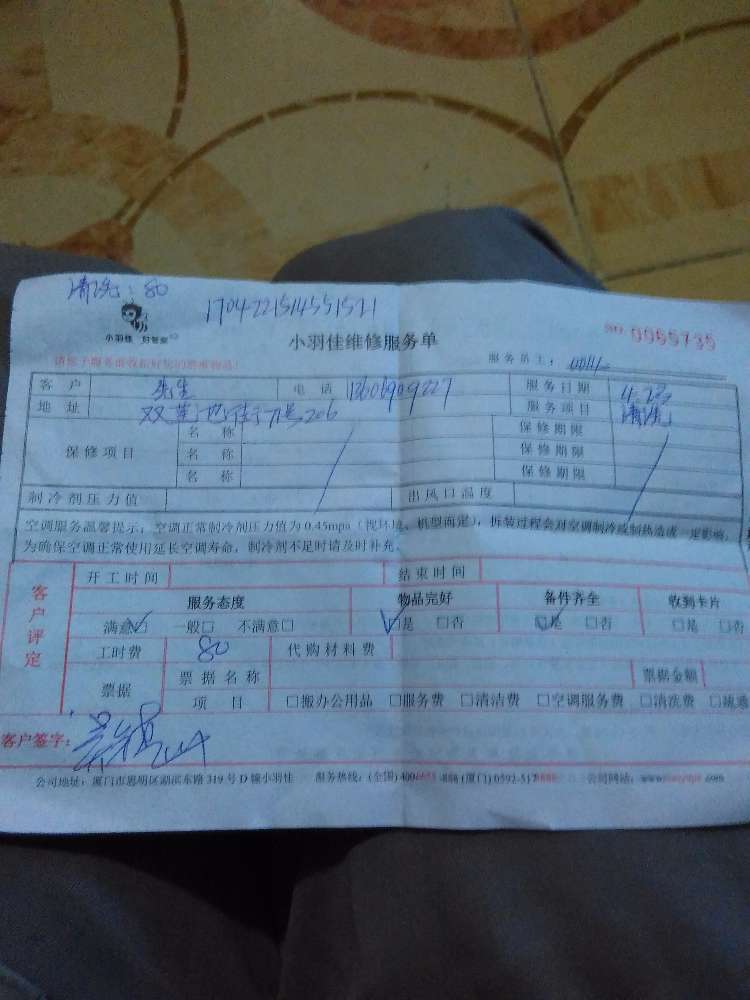 清洗：80
小羽佳 好管家
小羽佳维修服务单
NO. 0955735
请您予服务前收拾好您的贵重物品！
服务员工：
客户 先生 电话 13606909227 服务日期 4.23
地址 服务项目 清洗
保修项目 名称 保修期限
名称 保修期限
名称 保修期限
制冷剂压力值 出风口温度
空调服务温馨提示：空调正常制冷剂压力值为0.45mpa（视环境、机型而定），拆装过程会对空调制冷或制热造成一定影响，
为确保空调正常使用延长空调寿命，制冷剂不足时请及时补充。
客户评定
开工时间 结束时间
服务态度 物品完好 备件齐全 收到卡片
满意□ 一般□ 不满意□ □是 □否 □是 □否 □是 □否
工时费 80 代购材料费
票据 票据名称 票据金额
项目 □搬办公用品 □服务费 □清洁费 □空调服务费 □清洗费 □疏通
客户签字：
公司地址：厦门市思明区湖滨东路319号D幢小羽佳 服务热线：(全国) (厦门) 公司网站：